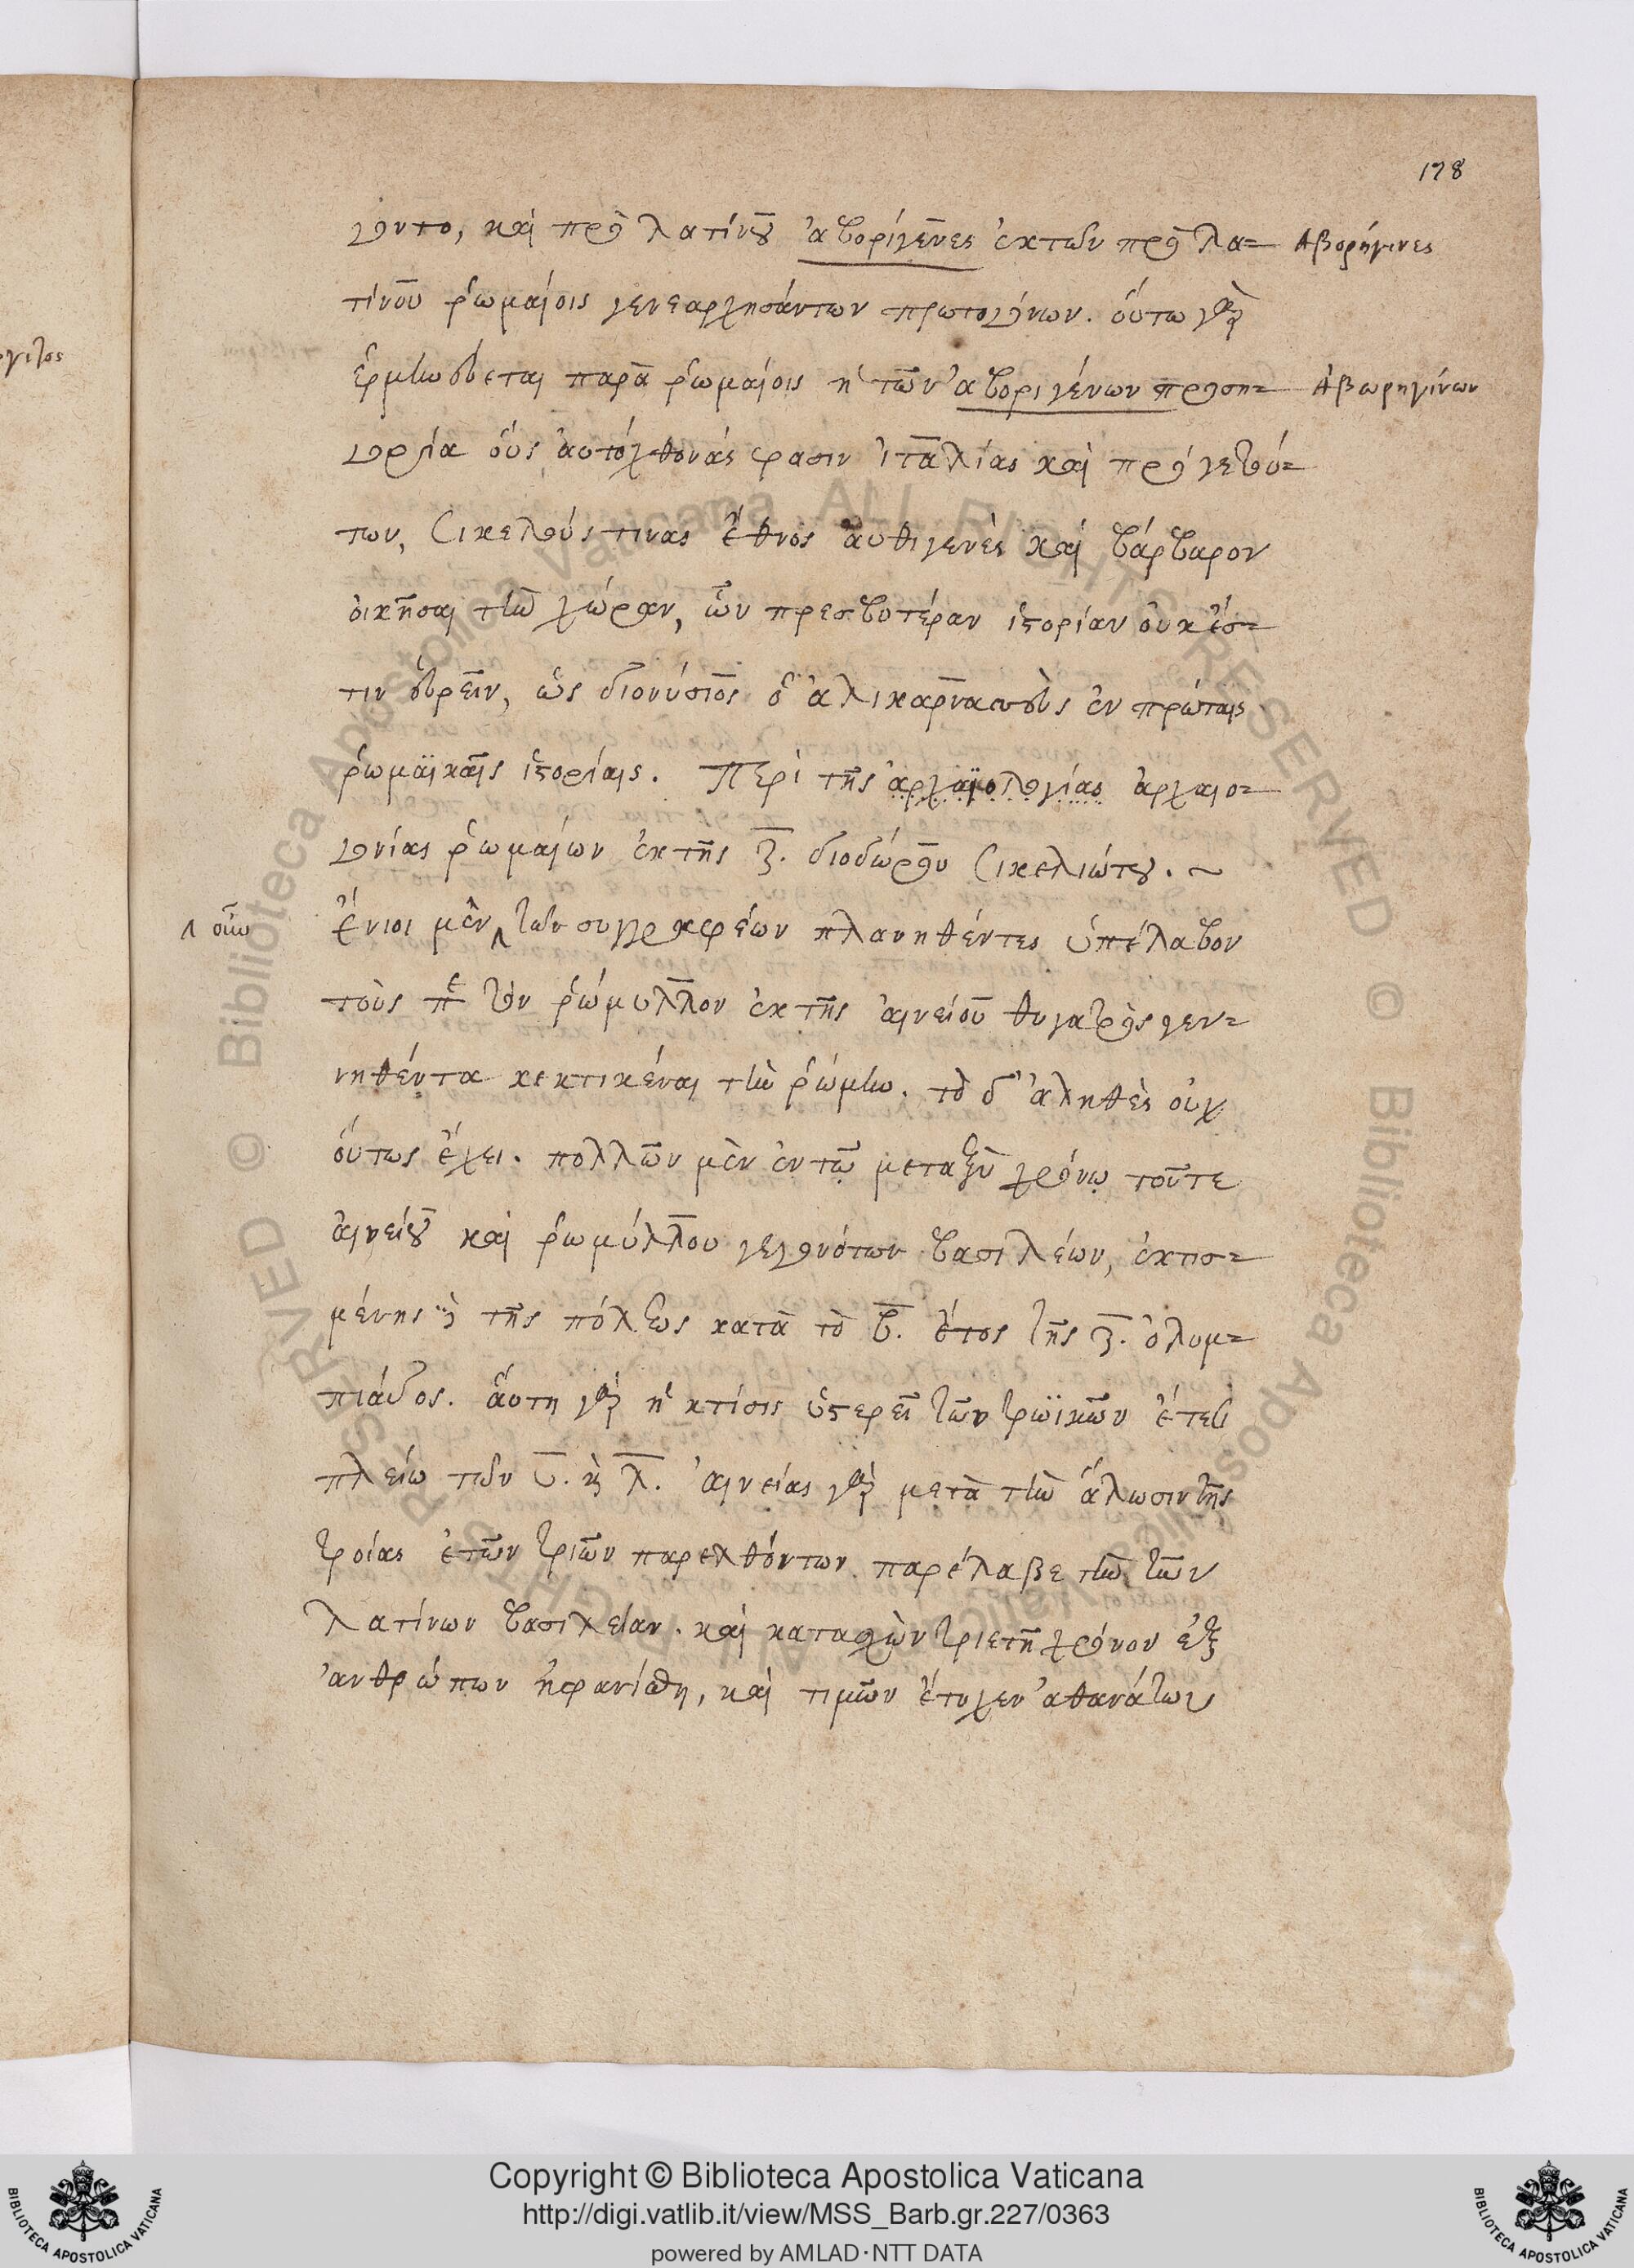 178
γοντο, καὶ πρὸ λατίνου ἀβοριγένες ἐκ τῶν πρὸ λα= Αβορήγινες
τίνου ῥωμαίοις γενεαρχησάντων πρωτογόνων. οὕτω γὰρ
ἑρμηνεύεται παρὰ ῥωμαίοις ἡ τῶν ἀβοριγένων προση= Ἀβωρηγίνων
γορία οὓς αὐτόχθονάς φασιν ἰταλίας καὶ προγενεσ=
των, Σικελούς τινας ἔθνος αὐθιγενὲς καὶ βάρβαρον
οἰκῆσαι τὴν χώραν, ὧν πρεσβυτέραν ἱστορίαν οὐκ ἔσ=
τιν εὑρεῖν, ὡς διονύσιος ὁ ἁλικαρνασεὺς ἐν πρώταις
ῥωμαϊκαῖς ἱστορίαις. Περὶ τῆς ἀρχαϊολογίας ἀρχαιο=
γονίας ῥωμαίων ἐκ τῆς ζ. διοδώρου Σικελιώτου. ~
Ἔνιοι μὲν τῶν συγγραφέων πλανηθέντες ὑπέλαβον
τοὺς πε τὸν ῥώμυλλον ἐκ τῆς αἰνείου θυγατρὸς γεν=
νηθέντα κεκτικέναι τὴν ῥώμην. τὸ δ' ἀληθὲς οὐχ
οὕτως ἔχει. πολλῶν μὲν ἐν τῷ μεταξὺ χρόνῳ τοῦτε
αἰνείου καὶ ῥωμύλλου γεγονότων βασιλέων, ἐκτισ=
μένης δὲ τῆς πόλεως κατὰ τὸ β. ἔτος τῆς ζ. ὀλυμ=
πιάδος. αὕτη γὰρ ἡ κτίσις ὑστερεῖ τῶν τρωϊκῶν ἔτεσι
πλείω τῶν υ. κὶ λ. αἰνείας γὰρ μετὰ τὴν ἅλωσιν τῆς
τροίας ἐτῶν τριῶν παρελθόντων παρέλαβε τὴν τῶν
λατίνων βασιλείαν. καὶ κατασχὼν τριετῆ χρόνον ἐξ
ἀνθρώπων ἠφανίσθη, καὶ τιμῶν ἔτυχεν ἀθανάτων
Copyright © Biblioteca Apostolica Vaticana
http://digi.vatlib.it/view/MSS_Barb.gr.227/0363
powered by AMLAD·NTT DATA
BIBLIOTECA APOSTOLICA VATICANA
BIBLIOTECA APOSTOLICA VATICANA